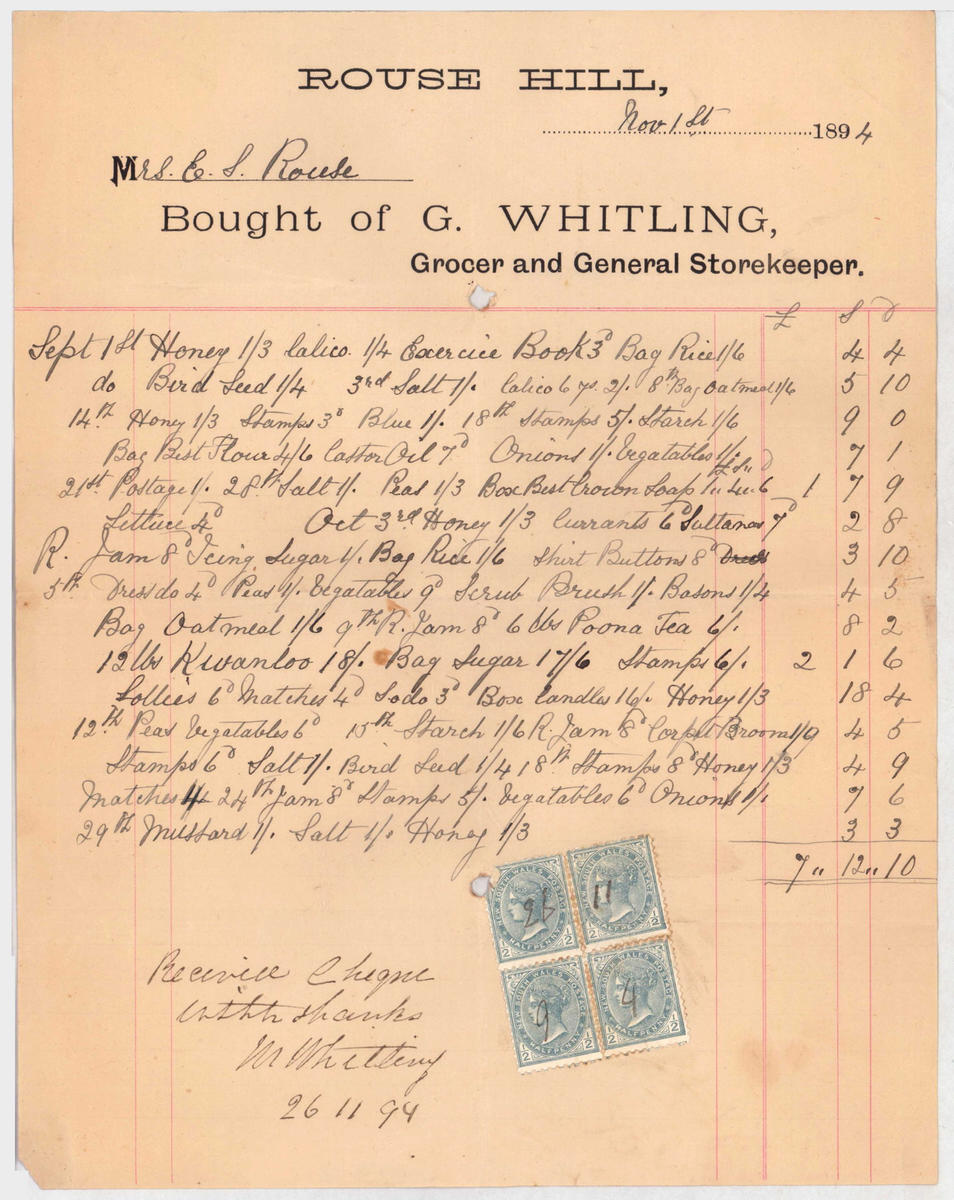 ROUSE HILL,
Nov 1st 1894
Mrs. E. S. Rouse
Bought of G. WHITLING,
Grocer and General Storekeeper.
£ S D
Sept 1st Honey 1/3 Calico. 1/4 Exercice Book 3d Bag Rice 1/6 4 4
do Bird Seed 1/4 3rd Salt 1/. Calico 6 ys. 2/. 8th Bag Oatmeal 1/6 5 10
14th Honey 1/3 Stamps 3d Blue 1/. 18th Stamps 5/. Starch 1/6 9 0
Bag Best Flour 4/6 Castor Oil 7d Onions 1/. Vegatables 1/. 7 1
£ S D
21st Postage 1/. 28th Salt 1/. Peas 1/3 Box Best Crown Soap 1 " 4 " 6 1 7 9
Lettuce 4d Oct 3rd Honey 1/3 Currants 6d Sultanas 7d 2 8
R. Jam 8d Icing Sugar 1/. Bag Rice 1/6 Shirt Buttons 8d Dress 3 10
5th Dress do 4d Peas 1/. Vegatables 9d Scrub Brush 1/. Basons 1/4 4 5
Bag Oatmeal 1/6 9th R. Jam 8d 6 lbs Poona Tea 6/. 8 2
12 lbs Kwanloo 18/. Bag Sugar 17/6 Stamps 6/. 2 1 6
Lollies 6d Matches 4d Soda 3d Box Candles 16/. Honey 1/3 18 4
12th Peas Vegatables 6d 15th Starch 1/6 R. Jam 8d Corpet Broom 1/9 4 5
Stamps 6d Salt 1/. Bird Seed 1/4 18th Stamps 8d Honey 1/3 4 9
Matches 4 24th Jam 8d Stamps 5/. Vegatables 6d Onions 1/. 7 6
29th Mussard 1/. Salt 1/. Honey 1/3 3 3
7 " 12 " 10
NEW SOUTH WALES POSTAGE HALFPENNY 1/2 26
NEW SOUTH WALES POSTAGE HALFPENNY 1/2 11
NEW SOUTH WALES POSTAGE HALFPENNY 1/2 1/2 9
NEW SOUTH WALES POSTAGE HALFPENNY 1/2 1/2 4
Received Cheque
with thanks
M Whitling
26 11 94